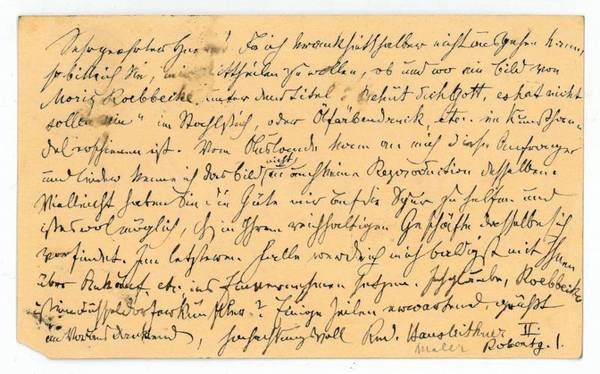 Sehr geehrter Herr! Da ich krankheitshalber nicht ausgehen kann,
so bitte ich Sie, mir mittheilen zu wollen, ob und wo ein Bild von
Moritz Roebbecke, unter dem Titel: „Behüt dich Gott, es hat nicht
sollen sein" im Stahlstich, oder Ölfarbendruck, etc. im Kunsthan-
del erschienen ist. Vom Auslande kam an mich diese Anfrage
und leider kenne ich das Bild nicht u. auch keine Reproduction desselben.
Vielleicht haben Sie die Güte mir auf die Spur zu helfen und
ist es wol möglich, daß in Ihrem reichhaltigen Geschäfte dasselbe sich
vorfindet. Im letzteren Falle werde ich mich baldigst mit Ihnen
über Ankauf etc. ins Einvernehmen setzen. Ich glaube, Roebbecke
ist ein Düsseldorfer Künstler? Einige Zeilen erwartend, grüßt
im Voraus dankend, hochachtungsvoll Rud. Hausleithner II.
Maler